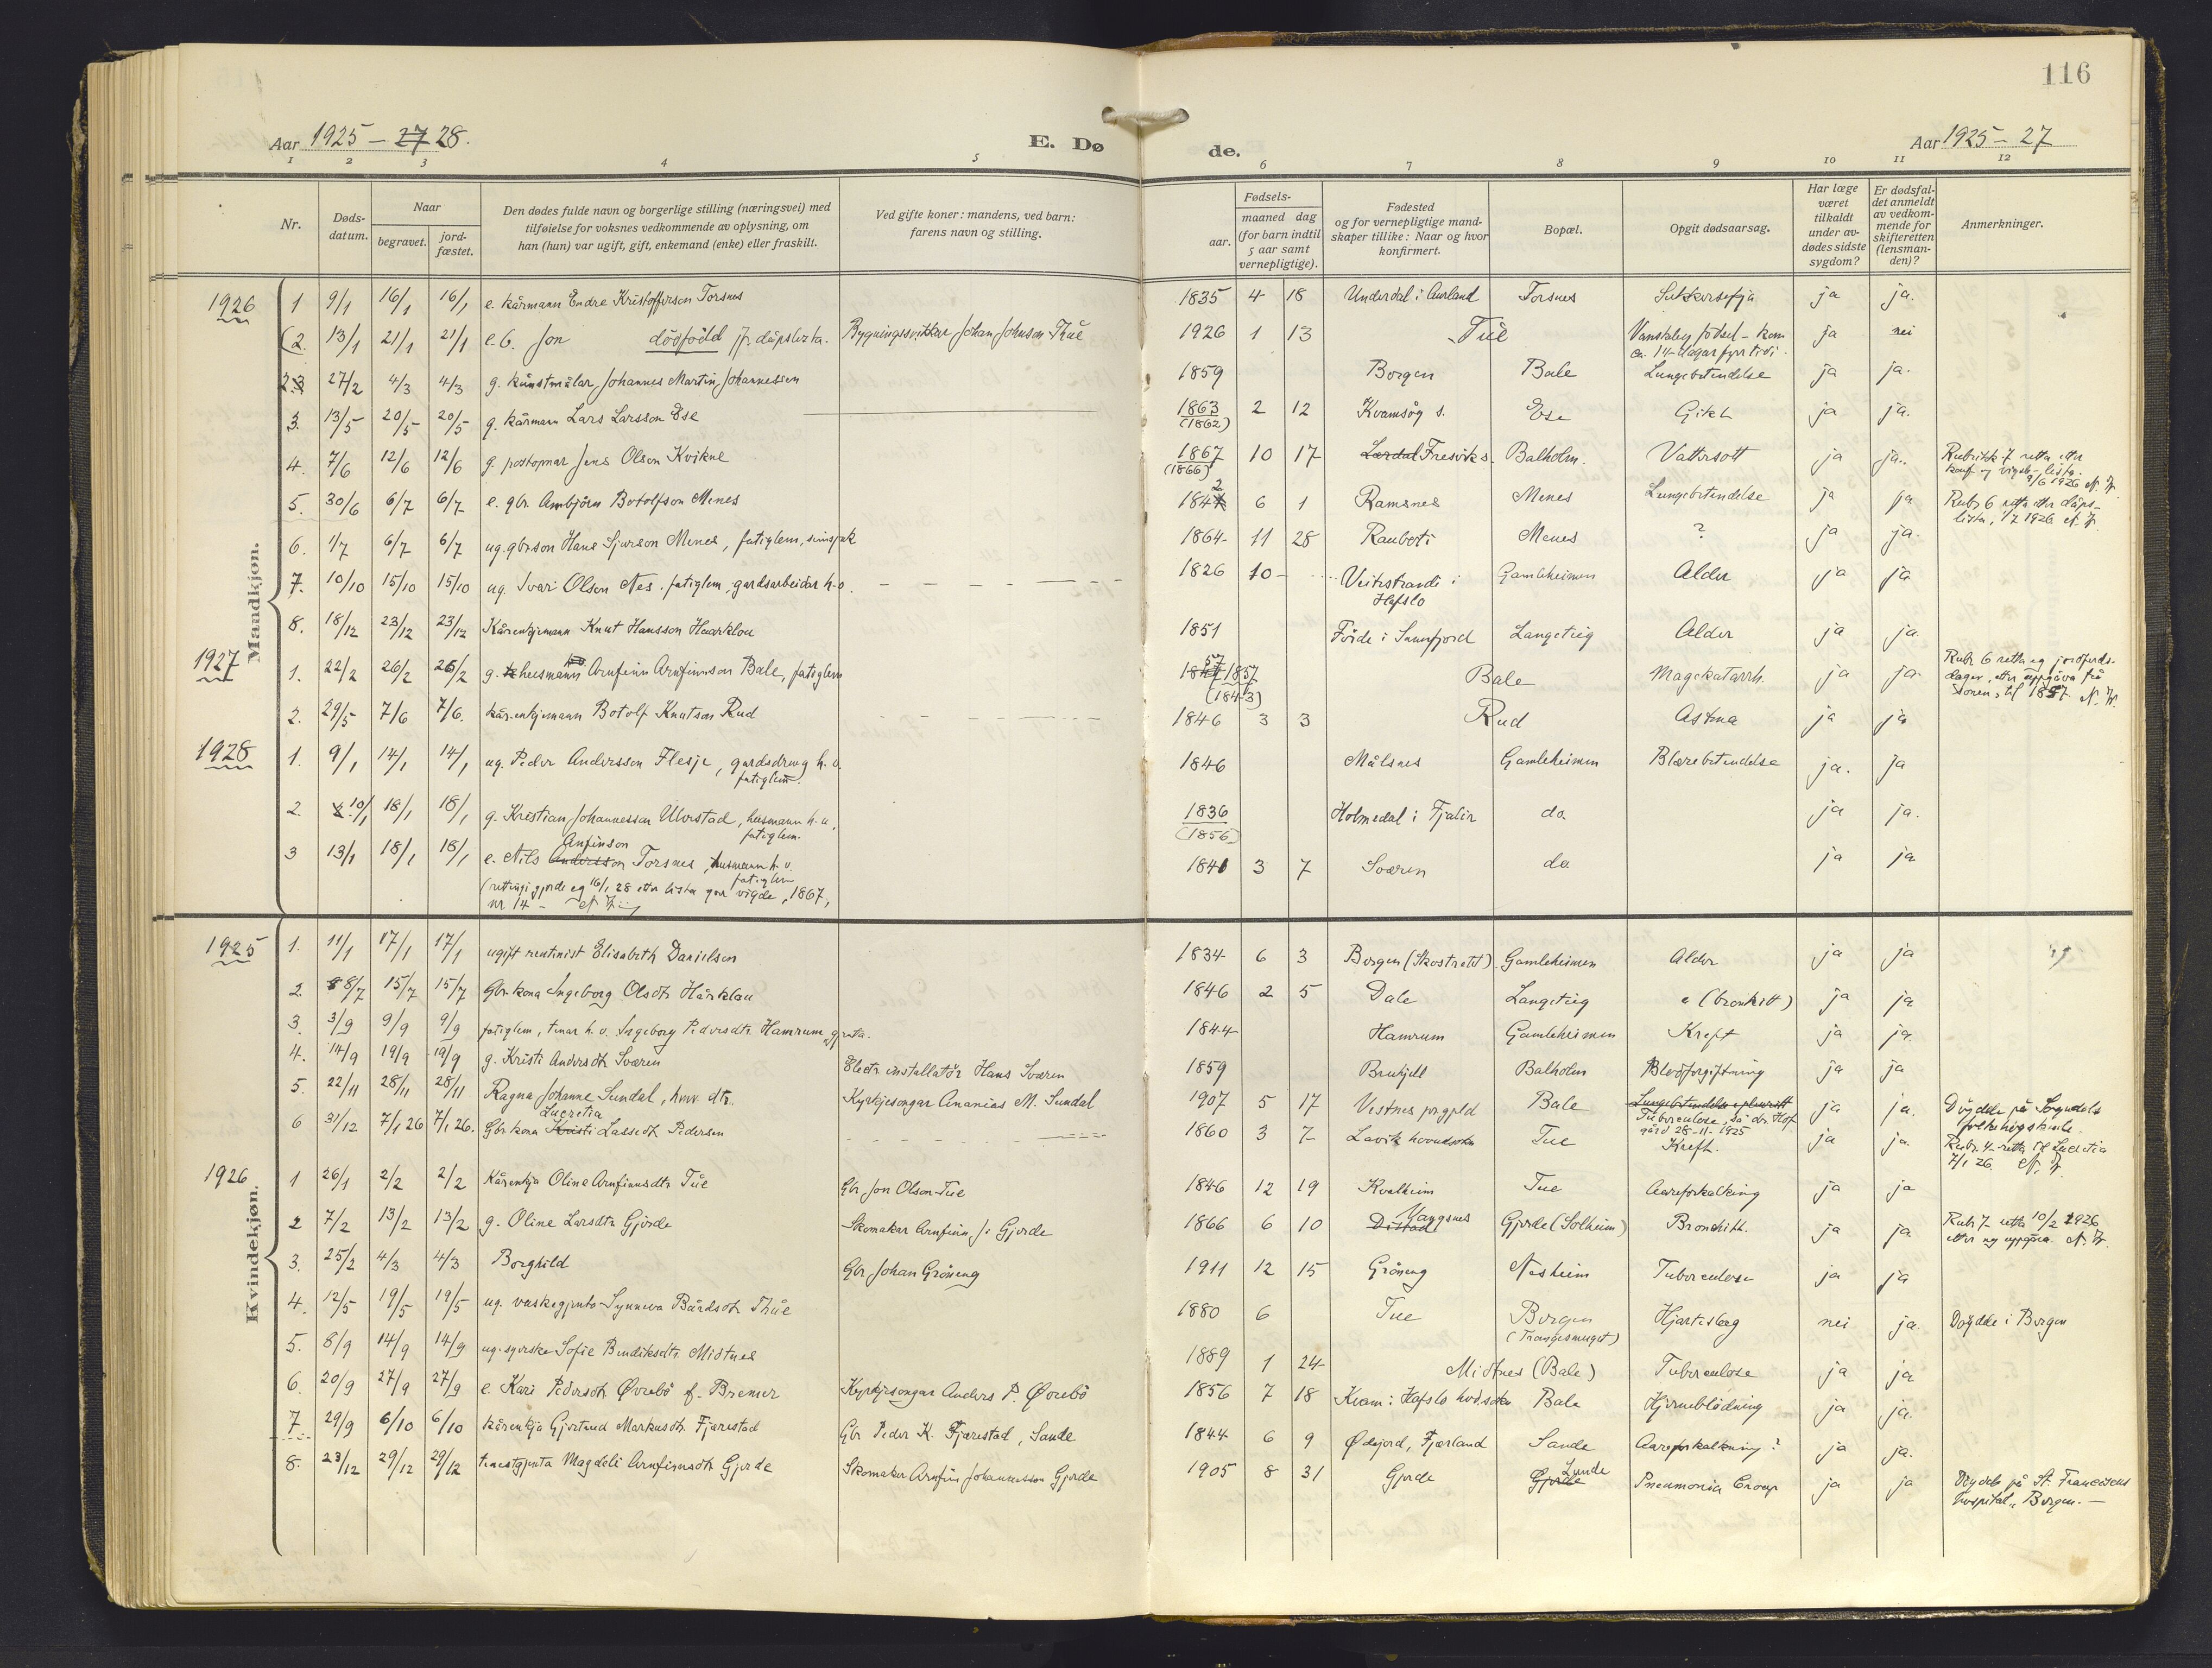 116
Aar 1925 – 27 28.
E. Dø
de.
Aar 1925 – 27
1 2 3 4 5 6 7 8 9 10 11 12
Nr.
Døds-
datum.
Naar
begravet.
jord-
fæstet.
Den dødes fulde navn og borgerlige stilling (næringsvei) med
tilføielse for voksnes vedkommende av oplysning, om
han (hun) var ugift, gift, enkemand (enke) eller fraskilt.
Ved gifte koner: mandens, ved barn:
farens navn og stilling.
Fødsels-
aar.
maaned dag
(for barn indtil
5 aar samt
vernepligtige).
Fødested
og for vernepligtige mand-
skaper tillike: Naar og hvor
konfirmert.
Bopæl.
Opgit dødsaarsag.
Har læge
været
tilkaldt
under av-
dødes sidste
sygdom?
Er dødsfal-
det anmeldt
av vedkom-
mende for
skifteretten
(lensman-
den)?
Anmerkninger.
Mandkjøn.
1926
1 9/1 16/1 16/1 e. kårmann Endre Kristofferson Torsnes 1835 4 18 Underdal i Aurland Torsnes Sukkersykja ja ja.
(2. 13/1 21/1 21/1 e.b. Jon dödfödd jfr. dåpslista. Bygningssnikkar Johan Johnson Thue 1926 1 13 Tue Vanskeleg födsel – kom ja nei
ca. 14 dagar fyrr tidi.
2 3 27/2 4/3 4/3 g. kunstmålar Johannes Martin Johannessen 1859 Bergen Bale Lungebetendelse ja ja.
3. 13/5 20/5 20/5 g. kårmann Lars Larsson Ese 1863 2 12 Kvamsøy s. Ese Gikt ja ja.
(1862)
4. 7/6 12/6 12/6 g. postopnar Jens Olson Kvikne 1867 10 17 Lærdal Fresvik s. Balholm. Vattersott ja ja. Rubrikk 7 retta etter
(1866) konf. og vigsle-lista.
9/6 1926
5. 30/6 6/7 6/7 e. gbr. Ambjörn Botolfson Menes 1842 6 1 Ramsnes Menes Lungebetendelse ja ja Rubr 6 retta etter dåps-
lista, 1/7 1926
6. 1/7 6/7 6/7 ug. gbrson Hans Sjurson Menes, fatiglem, sinnsjuk 1864 11 28 Rauboti Menes ? ja ja.
7. 10/10 15/10 15/10 ug. Ivar Olson Nes. fatiglem, gardsarbeidar h.v. 1826 10 – Veitestrand i Gamleheimen Alder ja ja
Hafslo
8. 18/12 23/12 23/12 Kårenkjemann Knut Hansson Haarklau 1851 Förde i Sunnfjord Langeteig Alder ja ja.
1927
1. 22/2 26/2 26/2 g. husmann Arnfinn Arnfinnson Bale, fatiglem 1857 Bale Magekatarrh. ja ja. Rubr 6 retta eg jordferds-
(1843) dagen, etter uppgåva frå
sonen, til 1857.
2. 29/5 7/6 7/6. kårenkjemann Botolf Knutson Rud 1846 3 3 Rud Astma ja ja
1928
1. 9/1 14/1 14/1 ug. Peder Andersson Flesje, gardsdreng h.v. 1846 Målsnes Gamleheimen Blærebetendelse ja. ja
fatiglem.
2. 10/1 18/1 18/1 g. Kristian Johannesson Ulvestad, husmann h.v. 1836 Holmedal i Fjaler do. ja ja.
fatiglem. (1856)
Anfinson
3 13/1 18/1 18/1 e. Nils Andersson Torsnes, husmann h.v. 1841 3 7 Sværen do ja ja
fatiglem
(rettingi gjorde eg 16/1 28 etter lista yver vigde, 1867,
nr 14 –
Kvindekjøn.
1925
1. 11/1 17/1 17/1 ugift rentenist Elisabeth Danielsen 1834 6 3 Bergen (Korskyrkja). Gamleheimen Alder ja ja
2. 8/7 15/7 15/7 Gbr.kona Ingeborg Olsdtr Hårklau 1846 2 5 Dale Langeteig " (bronkitt) ja ja
3. 3/9 9/9 9/9 fatiglem, tenar h.v. Ingeborg Pedersdtr. Hamrum, gjenta. 1844 Hamrum Gamleheimen Kreft ja ja.
4. 14/9 19/9 19/9 g. Kristi Andersdtr Sværen Electr. installatör Hans Sværen 1859 Brekjell Balholm Blodforgiftning ja ja
5. 22/11 28/11 28/11 Ragna Johanne Sundal, hmv. dtr. Kyrkjesongar Ananias M. Sundal 1907 5 17 Vestnes prgjeld Bale Lungebetendelse, pleuritt ja ja. Döydde på Sogndals
Tuberculose, då dr. Hof- folkehögskule.
gård 28-11-1925
Lucretia
6 31/12 7/1 26 7/1 26. Gbr kona Kristi Lassedtr Pedersen 1860 3 7 Lavik hovudsokn Tue Kreft. ja ja. Rubr. 4 retta til Lucretia
7/1 26.
1926
1 26/1 2/2 2/2 Kårenkja Oline Arnfinnsdtr Tue Gbr Jon Olson Tue 1846 12 19 Kvalheim Tue Aareforkalkning ja ja
2 7/2 13/2 13/2 g. Oline Larsdtr Gjerde Skomakar Arnfinn J. Gjerde 1866 6 10 Vangsnes Gjerde (Solheim) Bronchitt. ja ja Rubr 7 retta 10/2 1926
etter ny uppgåva.
3. 25/2 4/3 4/3 Borghild Gbr Johan Gröneng 1911 12 15 Gröneng Nesheim Tuberculose ja ja
4. 12/5 19/5 19/5 ug. vaskegjenta Synneva Bårdsdtr Thue 1880 6 Tue Bergen Hjarteslag nei ja. Döydde i Bergen
5. 8/9 14/9 14/9 ug. syerske Sofie Bendiksdtr. Midtnes 1889 1 24 Midtnes (Bale) Tuberculose ja ja
6. 20/9 27/9 27/9 e. Kari Pedersdtr Øvrebö f. Bremer Kyrkjesongar Anders P. Øvrebö 1856 7 18 Kvam i Hafslo hovd.sokn Bale Hjerneblödning ja ja.
7 29/9 6/10 6/10 kårenkja Gjertrud Markusdtr. Fjærestad Gbr Peder K. Fjærestad, Sande 1844 6 9 Ødejord, Fjærland Sande Aareforkalkning? ja ja.
8. 23/12 29/12 29/12 tenestgjenta Magdeli Arnfinnsdtr Gjerde Skomakar Arnfinn Johannesson Gjerde 1905 8 31 Gjerde Gjerde Lunde Pneumonia Croup ja ja Döydde på St. Franciscus
hospital, Bergen. –